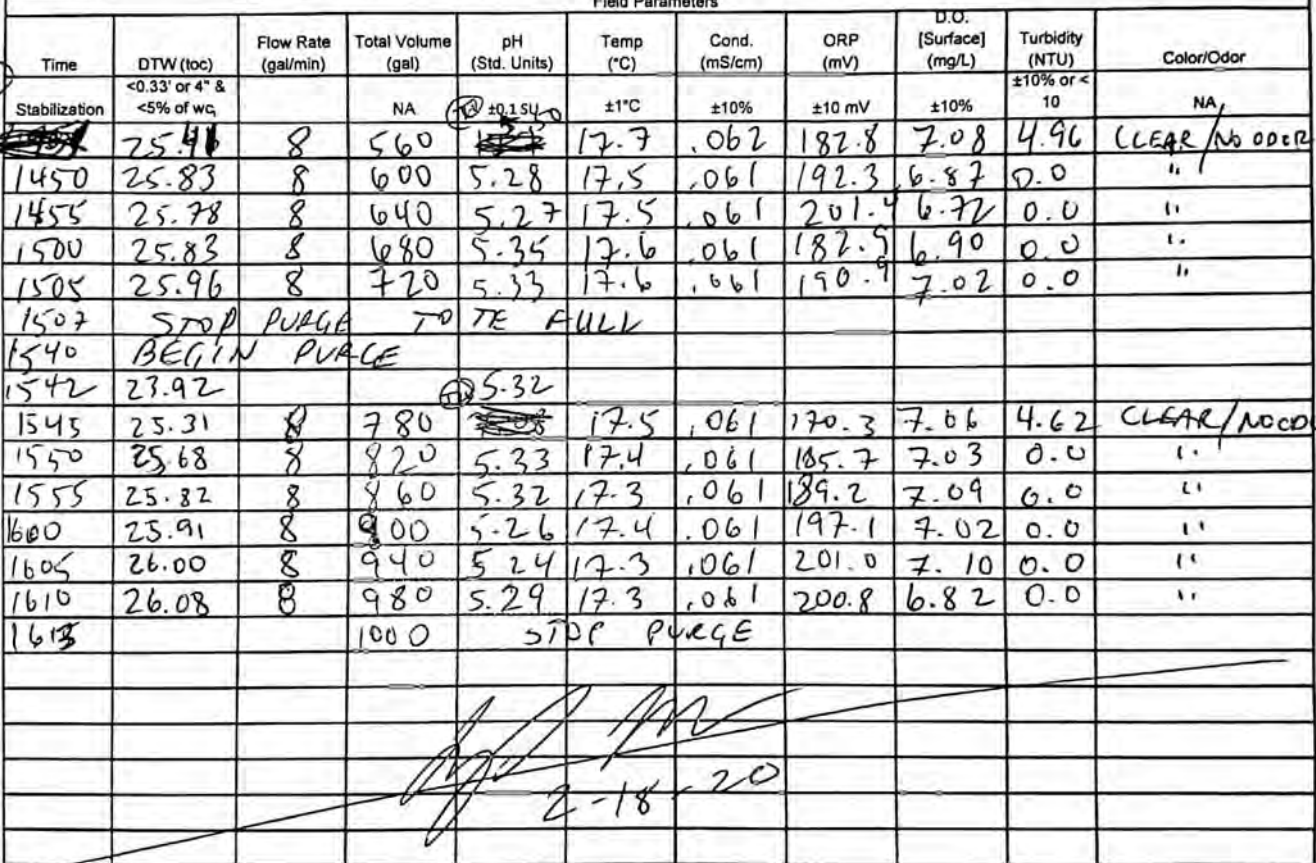 Field Parameters
Time DTW (toc) Flow Rate (gal/min) Total Volume (gal) pH (Std. Units) Temp (°C) Cond. (mS/cm) ORP (mV) D.O. [Surface] (mg/L) Turbidity (NTU) Color/Odor
Stabilization <0.33' or 4" & <5% of wc, NA ±0.1 SU ±1°C ±10% ±10 mV ±10% ±10% or < 10 NA
25.41 8 560 17.7 .062 182.8 7.08 4.96 CLEAR/NO ODER
1450 25.83 8 600 5.28 17.5 .061 192.3 6.87 0.0 "
1455 25.78 8 640 5.27 17.5 .061 201.4 6.72 0.0 "
1500 25.83 8 680 5.35 17.6 .061 182.5 6.90 0.0 "
1505 25.96 8 720 5.33 17.6 .061 190.9 7.02 0.0 "
1507 STOP PURGE FULL
1540 BEGIN PURGE
1542 23.92 5.32
1545 25.31 8 780 17.5 .061 170.3 7.06 4.62 CLEAR/
1550 25.68 8 820 5.33 17.4 .061 185.7 7.03 0.0 "
1555 25.82 8 860 5.32 17.3 .061 189.2 7.09 0.0 "
1600 25.91 8 900 5.26 17.4 .061 197.1 7.02 0.0 "
1605 26.00 8 940 5.24 17.3 .061 201.0 7.10 0.0 "
1610 26.08 8 980 5.29 17.3 .061 200.8 6.82 0.0 "
1000 STOP PURGE
2-18-20